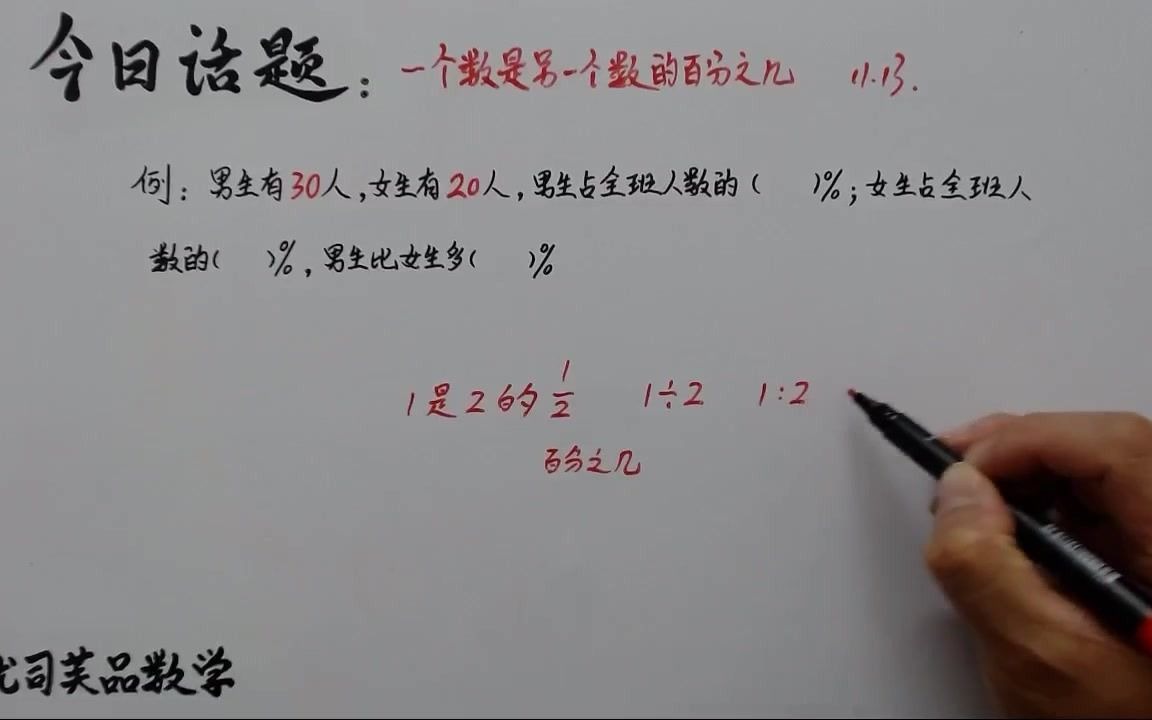 今日话题：一个数是另一个数的百分之几 11.13.
例：男生有30人，女生有20人，男生占全班人数的（ ）%；女生占全班人
数的（ ）%，男生比女生多（ ）%
1是2的1/2 1÷2 1:2
百分之几
司芙品数学